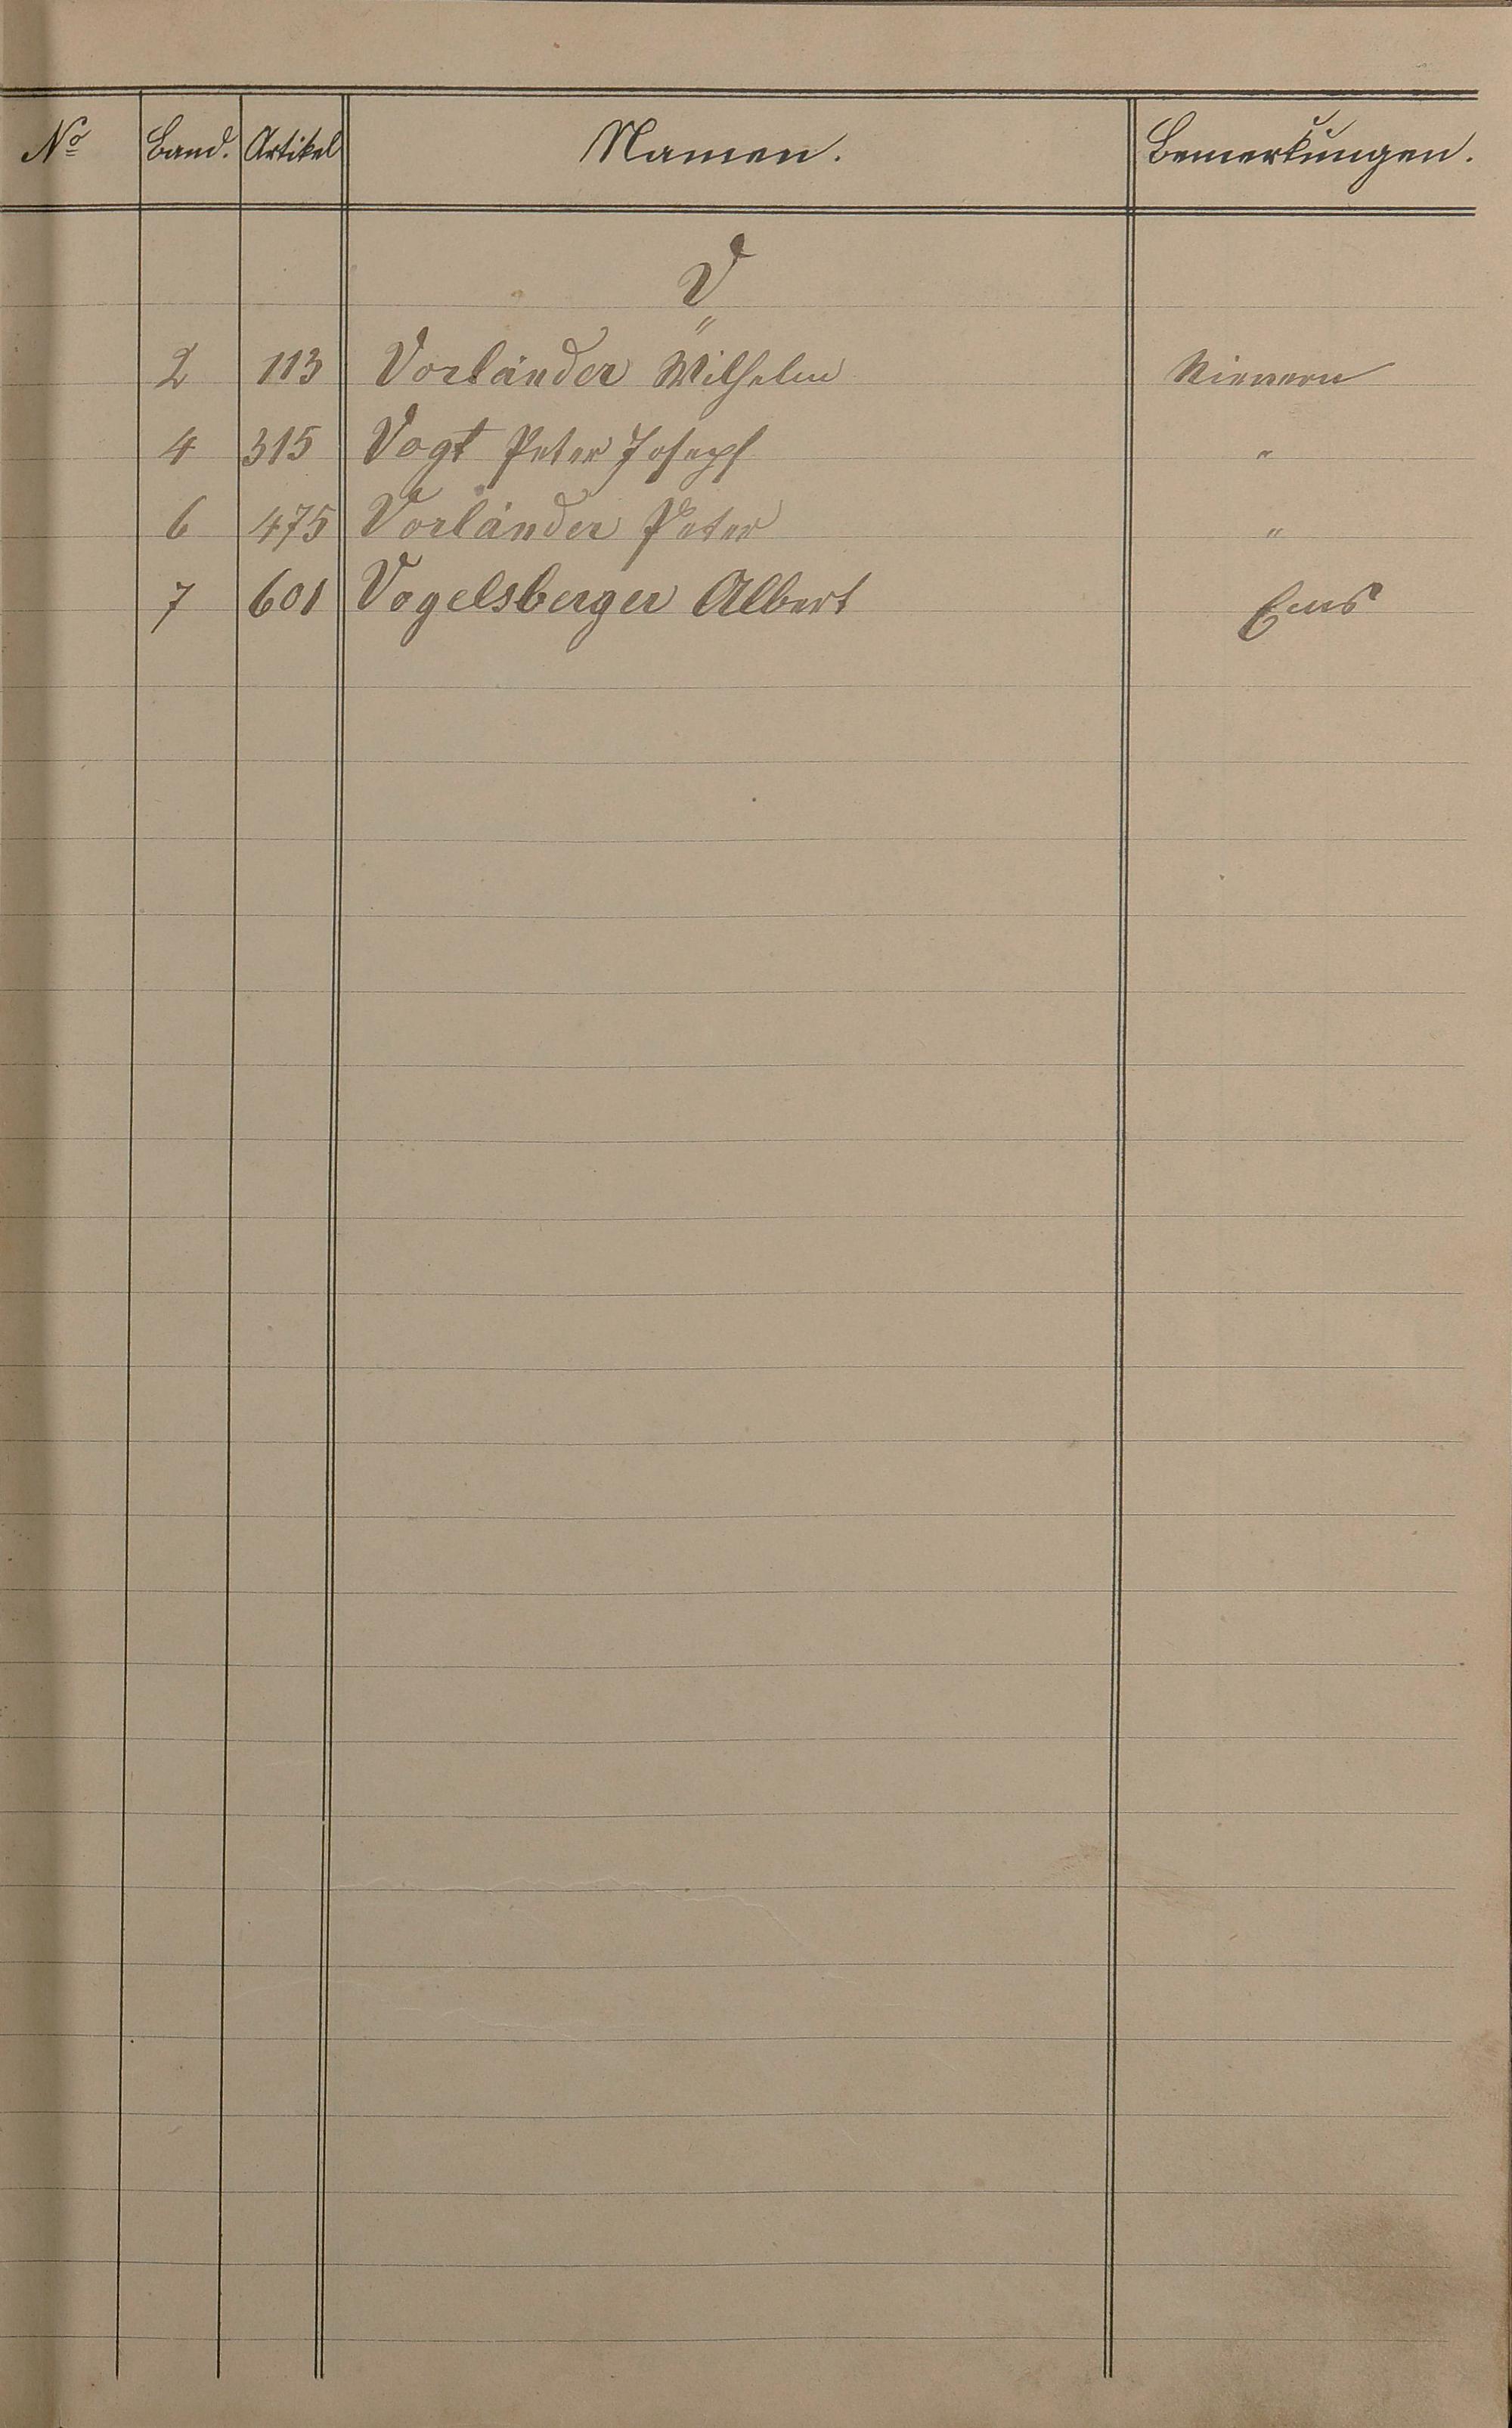 No Band. Artikel Namen. Bemerkungen.
V
"
2 113 Vorländer Wilhelm Nievern
4 315 Vogt Peter Joseph "
6 475 Vorländer Peter "
7 601 Vogelsberger Albert Ems